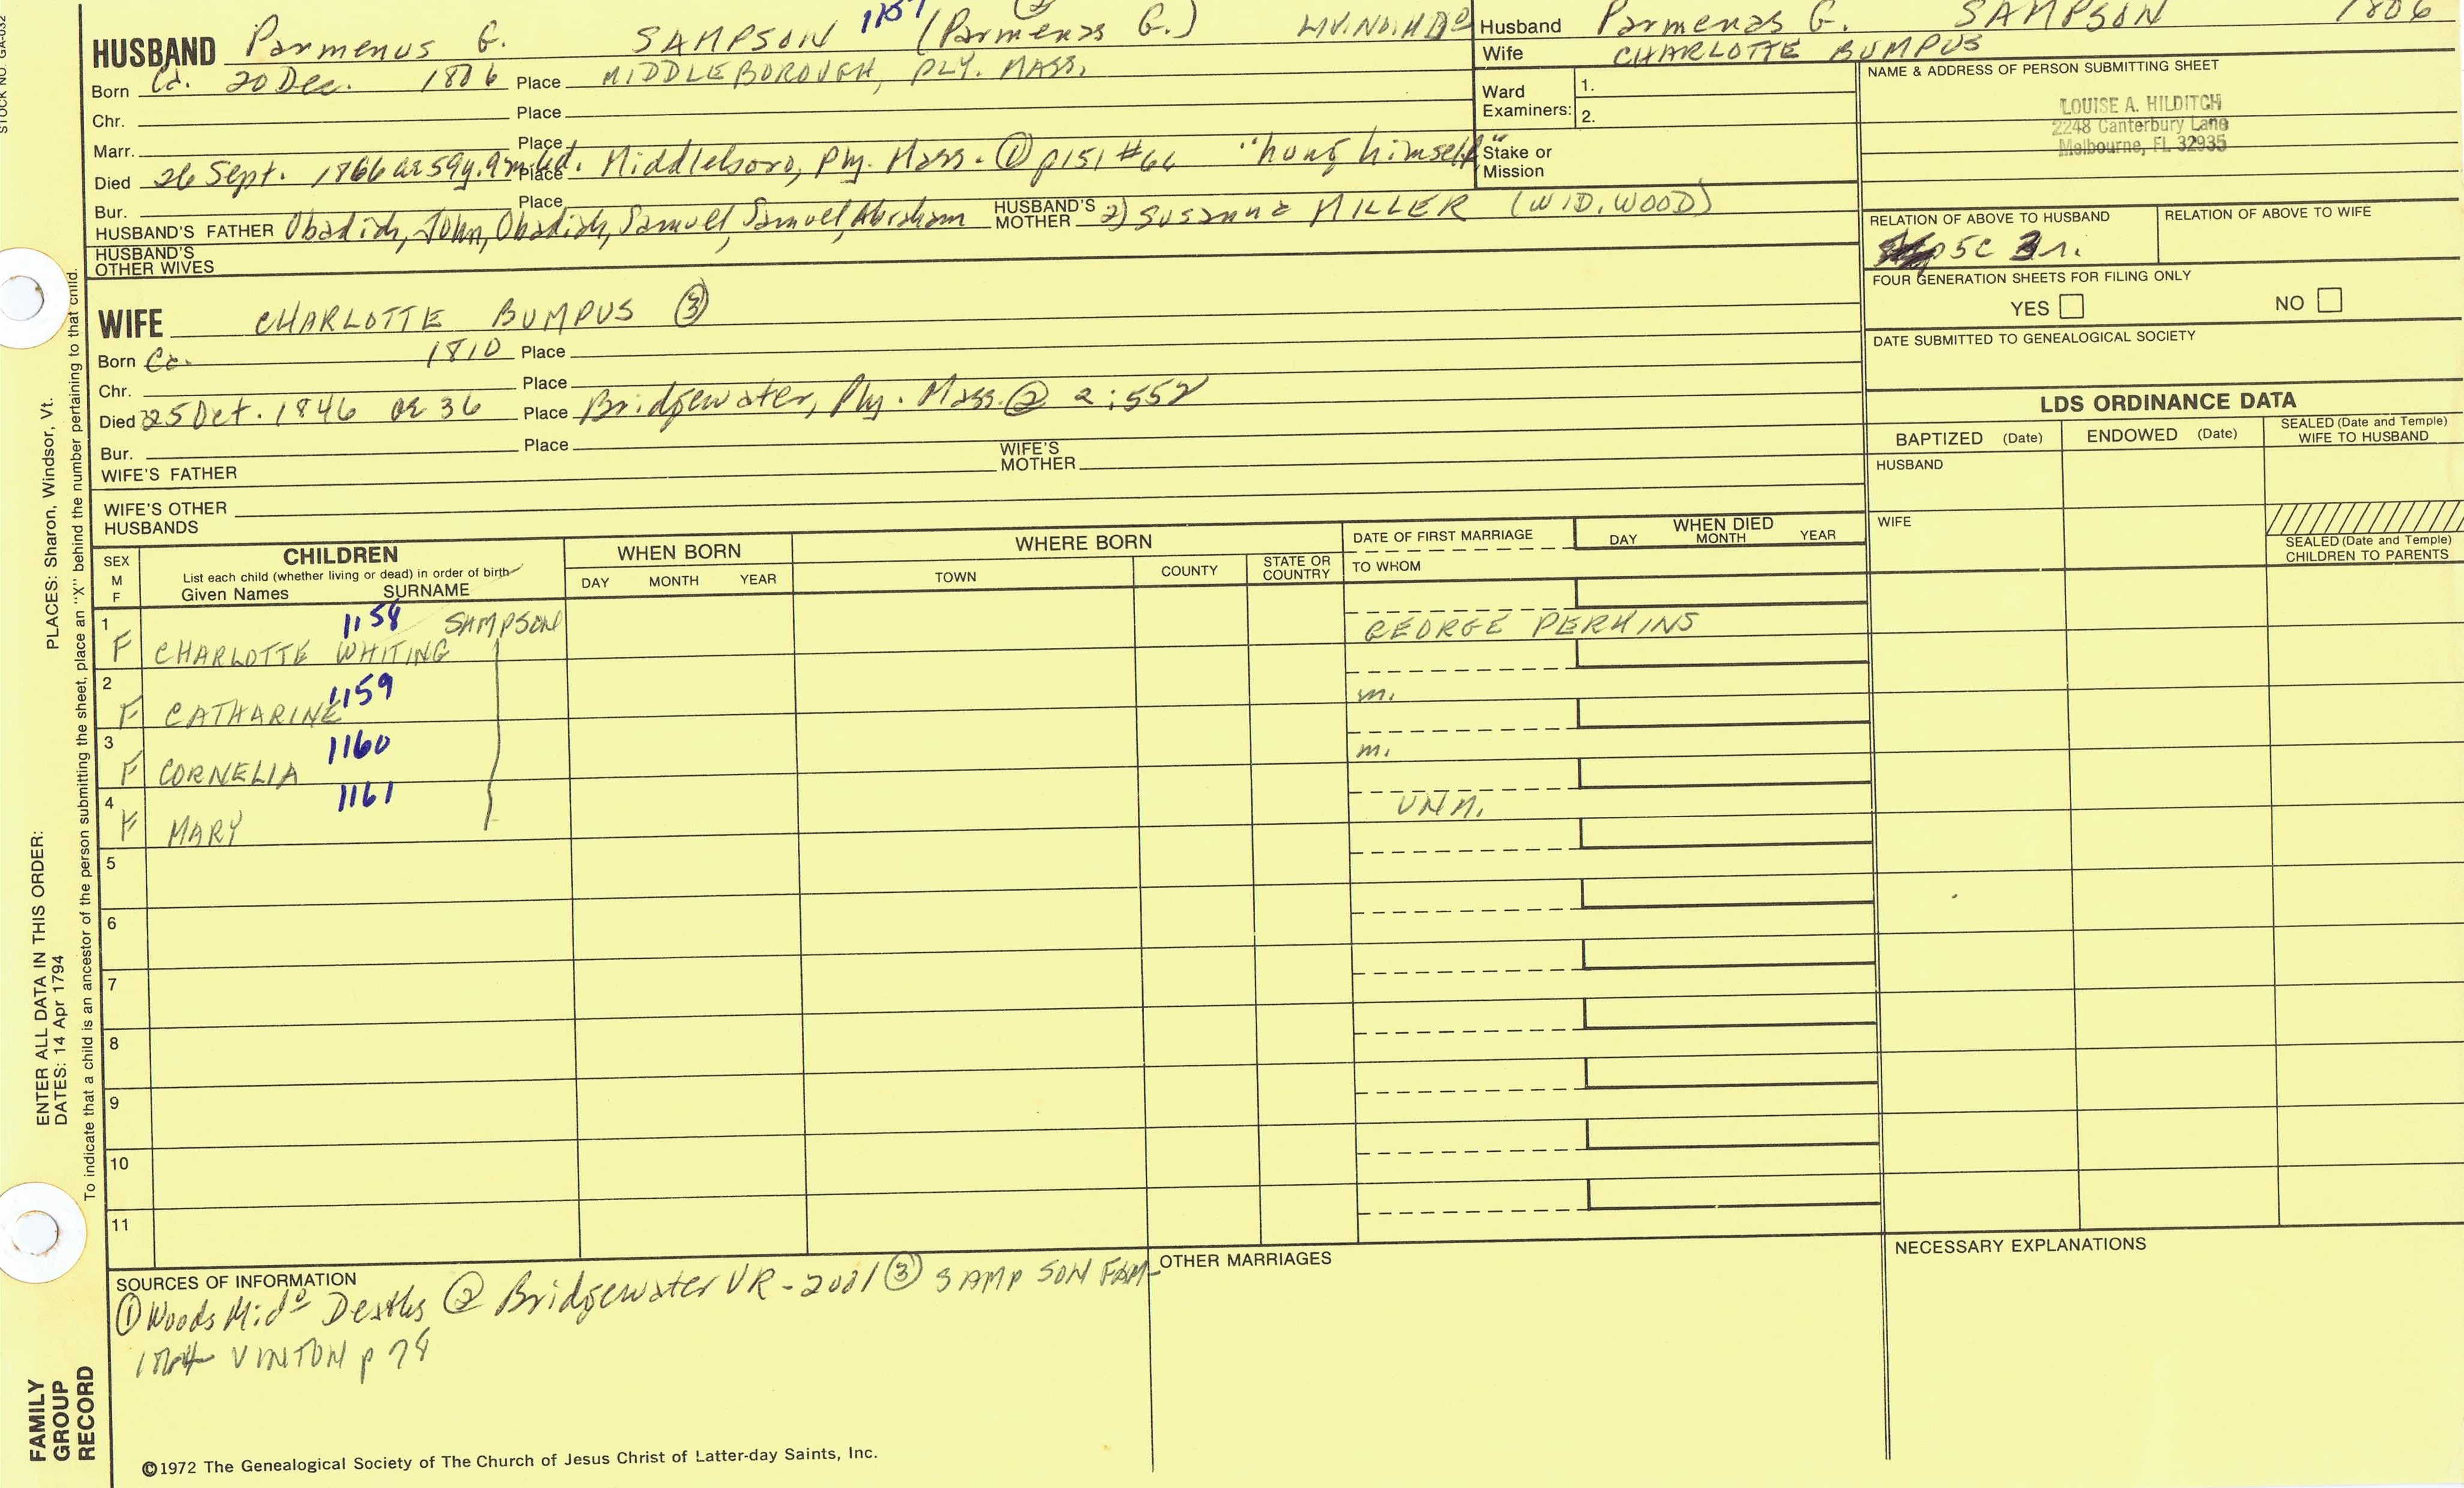 STOCK NO. GA-032
HUSBAND Parmenus G. SAMPSON 1157 (Parmenas G.)
Born Ca. 20 Dec. 1806 Place MIDDLEBOROUGH, PLY. MASS.
Chr. Place
Marr. Place
Died 26 Sept. 1866 ae 59y.9m. Place Middleboro, Ply. Mass. ① p151 #66 "hung himself"
Bur. Place
HUSBAND'S FATHER Obadiah, John, Obadiah, Samuel, Samuel, Abraham HUSBAND'S MOTHER 2) Susanna MILLER (WID. WOOD)
HUSBAND'S OTHER WIVES
WIFE CHARLOTTE BUMPUS ③
Born Ca. 1810 Place
Chr. Place
Died 25 Oct. 1846 ae 36 Place Bridgewater, Ply. Mass. ② 2:552
Bur. Place
WIFE'S FATHER WIFE'S MOTHER
WIFE'S OTHER HUSBANDS
Husband Parmenas G. SAMPSON 1806
Wife CHARLOTTE BUMPUS
Ward Examiners: 1.
2.
Stake or Mission
NAME & ADDRESS OF PERSON SUBMITTING SHEET
LOUISE A. HILDITCH
2248 Canterbury Lane
Melbourne, FL 32935
RELATION OF ABOVE TO HUSBAND RELATION OF ABOVE TO WIFE
5C 3r.
FOUR GENERATION SHEETS FOR FILING ONLY
YES NO
DATE SUBMITTED TO GENEALOGICAL SOCIETY
LDS ORDINANCE DATA
BAPTIZED (Date) ENDOWED (Date) SEALED (Date and Temple) WIFE TO HUSBAND
HUSBAND
WIFE
SEALED (Date and Temple) CHILDREN TO PARENTS
SEX M F CHILDREN WHEN BORN WHERE BORN DATE OF FIRST MARRIAGE WHEN DIED
List each child (whether living or dead) in order of birth
Given Names SURNAME DAY MONTH YEAR TOWN COUNTY STATE OR COUNTRY TO WHOM DAY MONTH YEAR
1 F CHARLOTTE WHITING 1158 SAMPSON GEORGE PERKINS
2 F CATHARINE 1159 m.
3 F CORNELIA 1160 m.
4 F MARY 1161 UNM.
5
6
7
8
9
10
11
SOURCES OF INFORMATION
① Woods Mido Deaths ② Bridgewater VR-2001 ③ SAMPSON FAM-
VINTON p 78
OTHER MARRIAGES
NECESSARY EXPLANATIONS
©1972 The Genealogical Society of The Church of Jesus Christ of Latter-day Saints, Inc.
FAMILY GROUP RECORD
ENTER ALL DATA IN THIS ORDER:
DATES: 14 Apr 1794
PLACES: Sharon, Windsor, Vt.
To indicate that a child is an ancestor of the person submitting the sheet, place an "X" behind the number pertaining to that child.